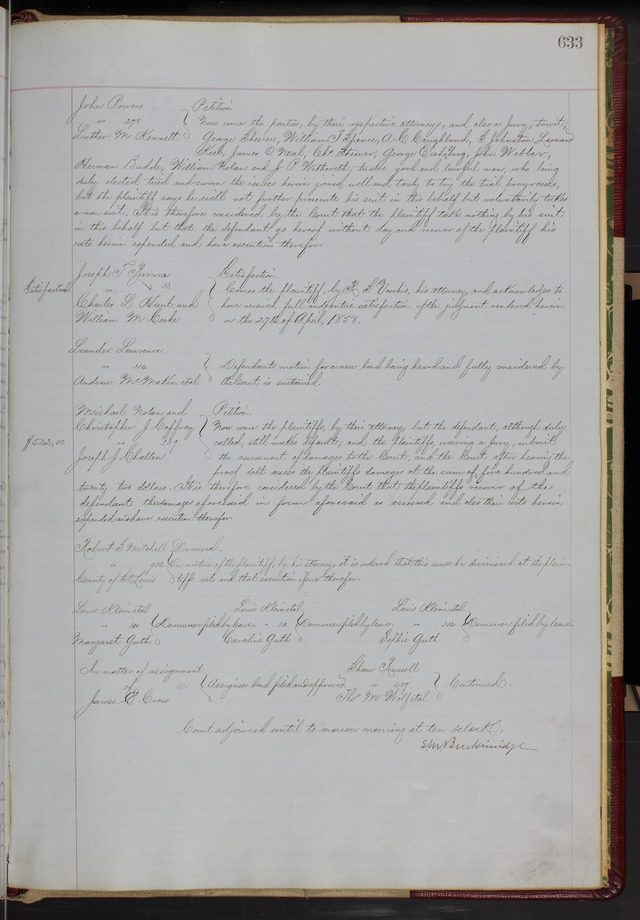 633
John Powers } Petition
" 278 Now come the parties, by their respective attorneys, and also a Jury, to wit,
Luther M Kennett George Shever, William T Spence, A. C. Caughland, S Johnston, Leonard
Keeb, James O Neal, Chs Shewer, George Eichelberg, John Webber,
Herman Budde, William Nolan and J. P. Wethardt, twelve good and lawful men, who being
duly elected tried and sworn the issues herein joined, well and truly to try, the trial progresses,
but the plaintiff says he will not further prosecute his suit in this behalf but voluntarily takes
a non suit. It is therefore considered by the Court that the plaintiff take nothing by his suit
in this behalf but that the defendant go hereof without day and recover of the plaintiff his
costs herein expended and have execution therefor.
Joseph T Brown } Satisfaction.
Satisfaction " Comes the plaintiff, by his attorney, and acknowledges to
Charles L Hunt and have received full and entire satisfaction of the judgment rendered herein
William M Cooke on the 27th of April, 1858.
Leander Lawrence
" } Defendants motion for a new bond being heard and fully considered by
Andrew McMakin et al the Court is sustained.
Michael Nolan and } Petition.
Christopher J. Caffrey Now come the plaintiffs, by their attorney, but the defendant, although duly
$522,00 " 239 called, still makes default, and the plaintiffs, waiving a jury, submit
Joseph J Challen the assessment of damages to the Court, and the Court after hearing the
proof doth assess the plaintiffs damages at the sum of five hundred and
twenty two dollars. It is therefore considered by the Court that the plaintiffs recover of the
defendant the damages aforesaid in form aforesaid as assessed and also their costs herein
expended and have execution therefor
Robert S Mitchell } Dismissed.
" 912 On motion of the plaintiff, by his attorney, it is ordered that this cause be dismissed at the plain-
County of St Louis tiffs costs and that execution issue therefor.
Louis Klein et al Louis Klein et al Louis Klein et al
" 110 } Demurrer filed by leave " 111 } Demurrer filed by leave " 112 } Demurrer filed by leave
Margaret Guth Caroline Guth Sophie Guth
In matter of assignment Shaw Russell
of } Assignees bond filed and approved " 279 } Continued.
James E Cross Thos M Wolf et al
Court adjourned until to morrow morning at ten oclock.
S M Breckinridge